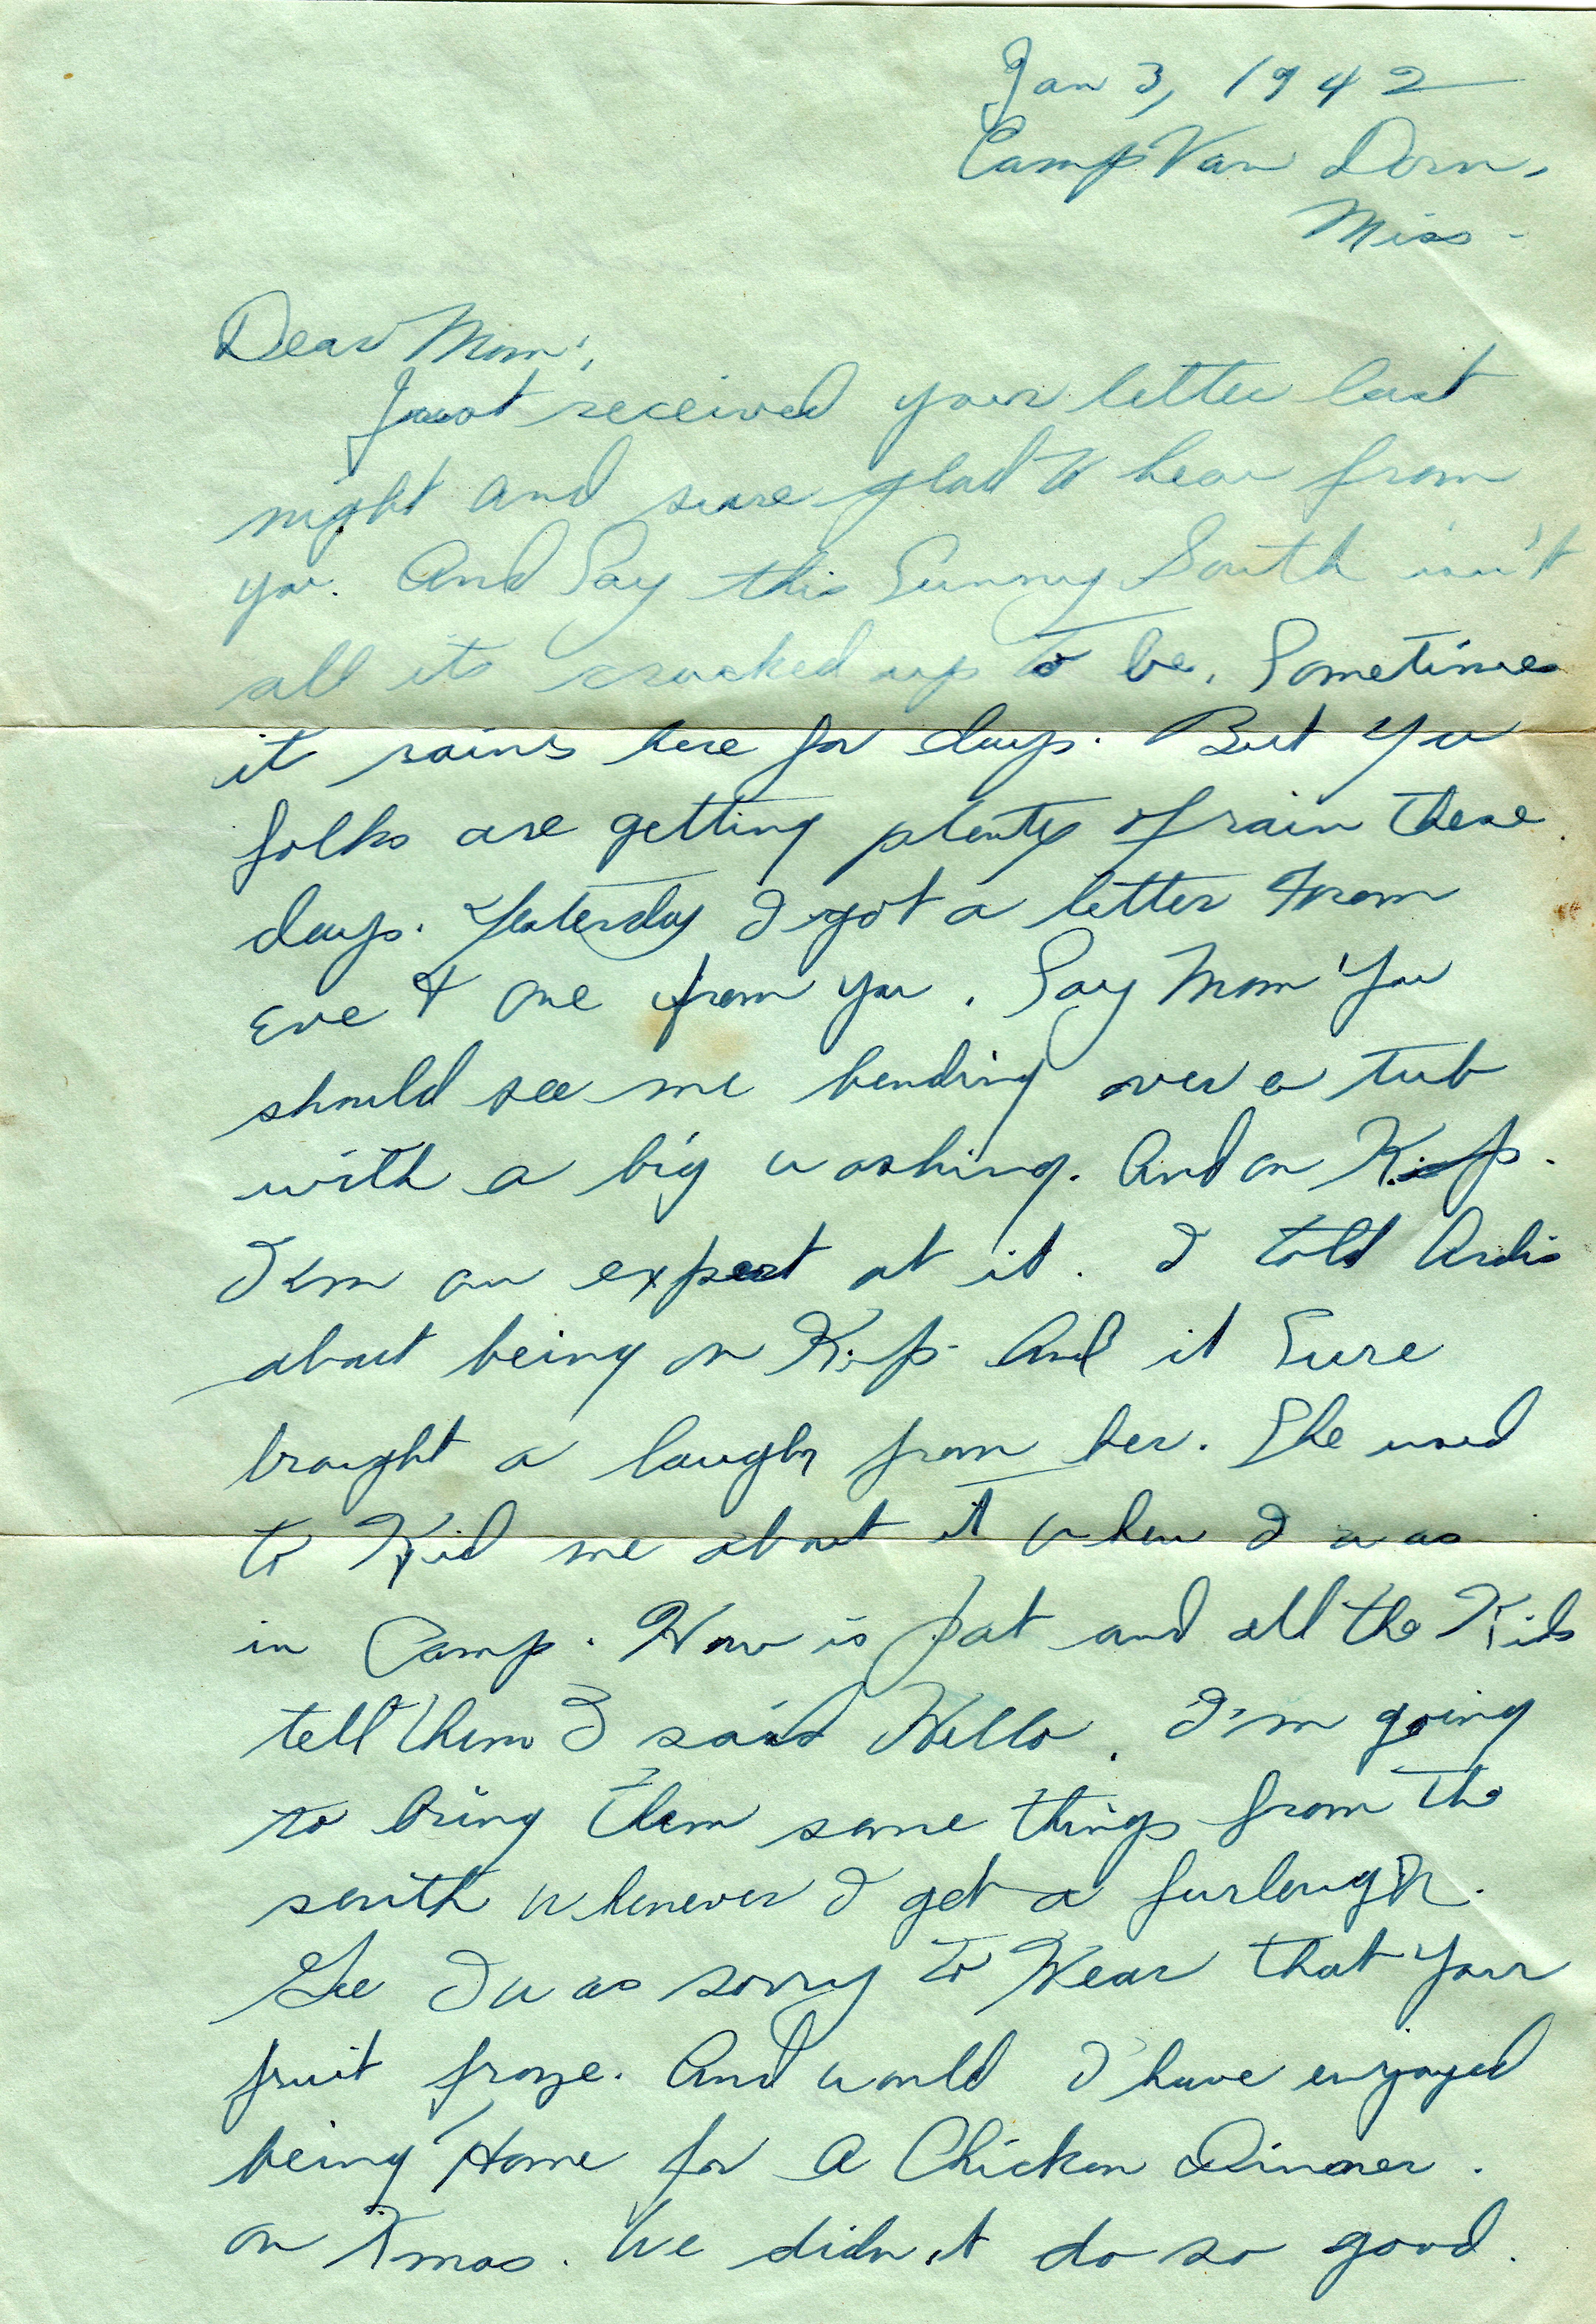 Jan 3, 1942
Camp Van Dorn,
Miss-
Dear Mom:,
Just received your letter last
night and sure glad to hear from
you. And Say this Sunny South isn't
all its cracked up to be. Sometimes
it rains here for days. But You
folks are getting plenty of rain these
days. Yesterday I got a letter From
Eve & one from you. Say Mom You
should see me bending over a tub
with a big washing. And on K.P.
I'm an expert at it. I told Ardis
about being on K.P. And it Sure
brought a laugh from her. She used
to Kid me about it when I was
in Camp. How is Pat and all the Kids
tell them I said Hello. I'm going
to bring them some things from the
south whenever I get a furlough.
Gee I was sorry to Hear that Your
fruit froze. And would I have enjoyed
being Home for A Chicken Dinner.
on Xmas. We didn't do so good.